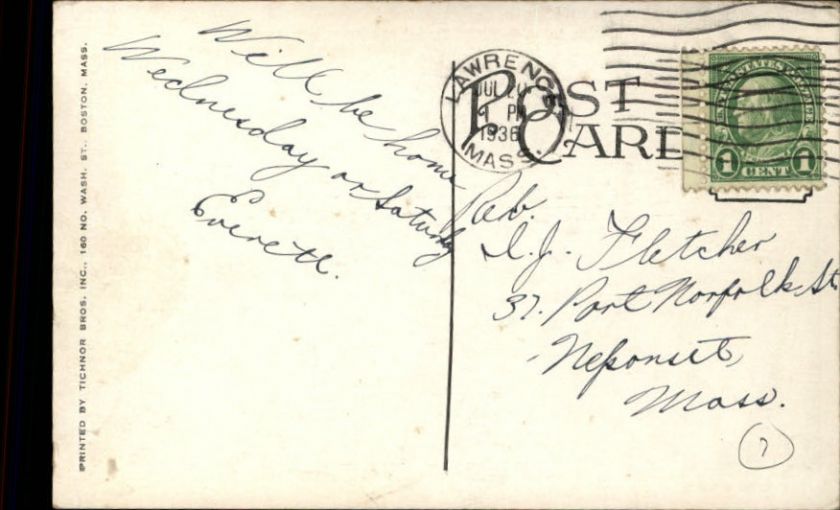 Will be home
Wednesday or Saturday
Everett.
PRINTED BY TICHNOR BROS. INC., 160 NO. WASH. ST., BOSTON, MASS.
POST
CARD
LAWRENCE
JUL 20
PM
1936
MASS.
UNITED STATES POSTAGE
1 CENT 1
Rev.
D.J. Fletcher
37. Port Norfolk St
Neponset,
Mass.
7